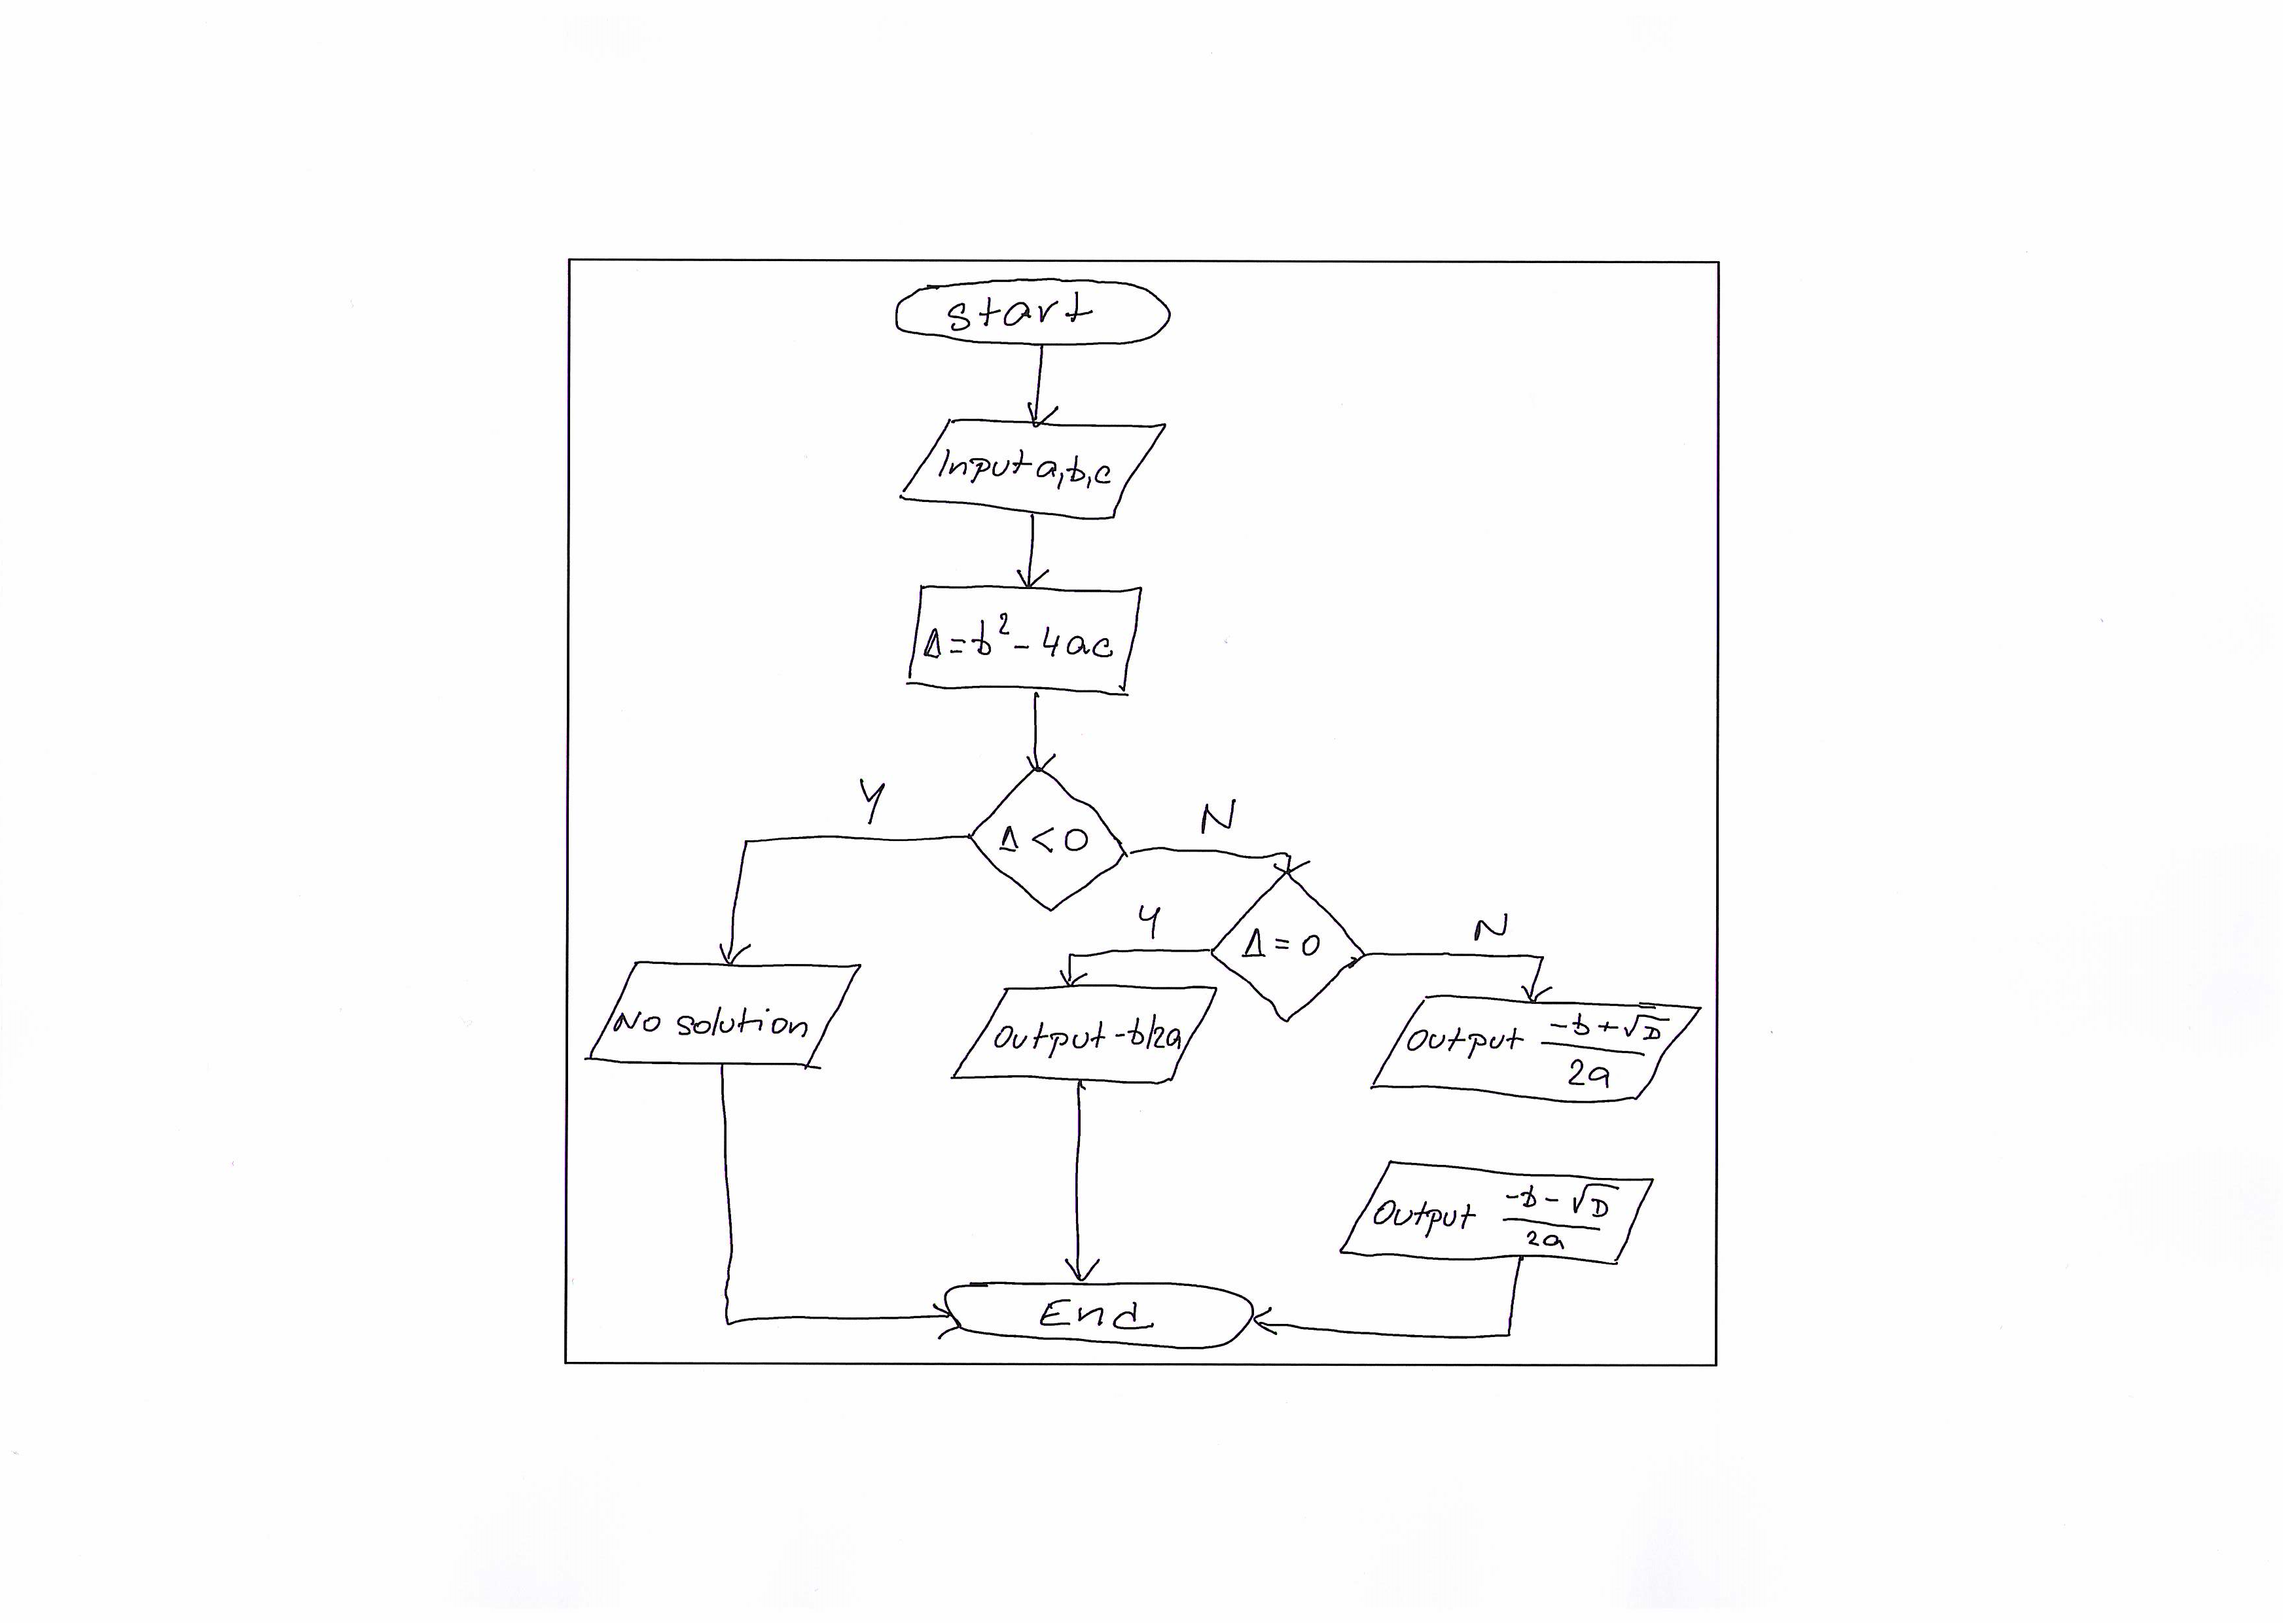 start
Input a,b,c
Δ=b²-4ac
Δ<0
Y
N
Δ=0
Y
N
No solution
Output -b/2a
Output (-b+√D)/2a
Output (-b-√D)/2a
End